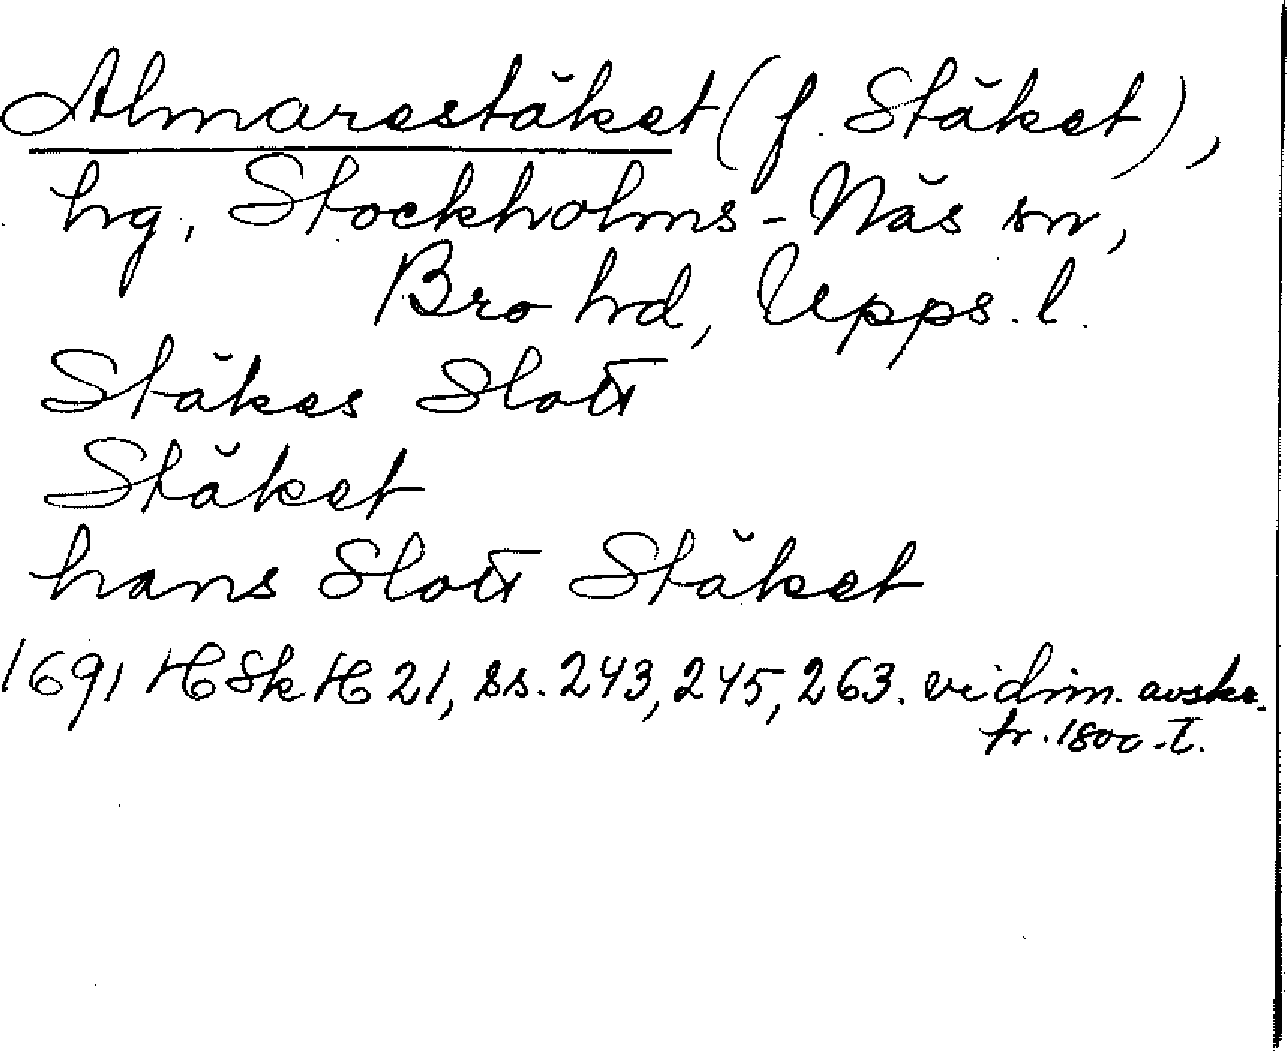 Almarestäket (f. Stäket),
hg, Stockholms-Näs sn,
Bro hd, Upps. l.
Stäkes Slott
Stäket
hans Slott Stäket
1691 HSkH 21, ss. 243, 245, 263. vidim. avskr.
fr. 1800-t.